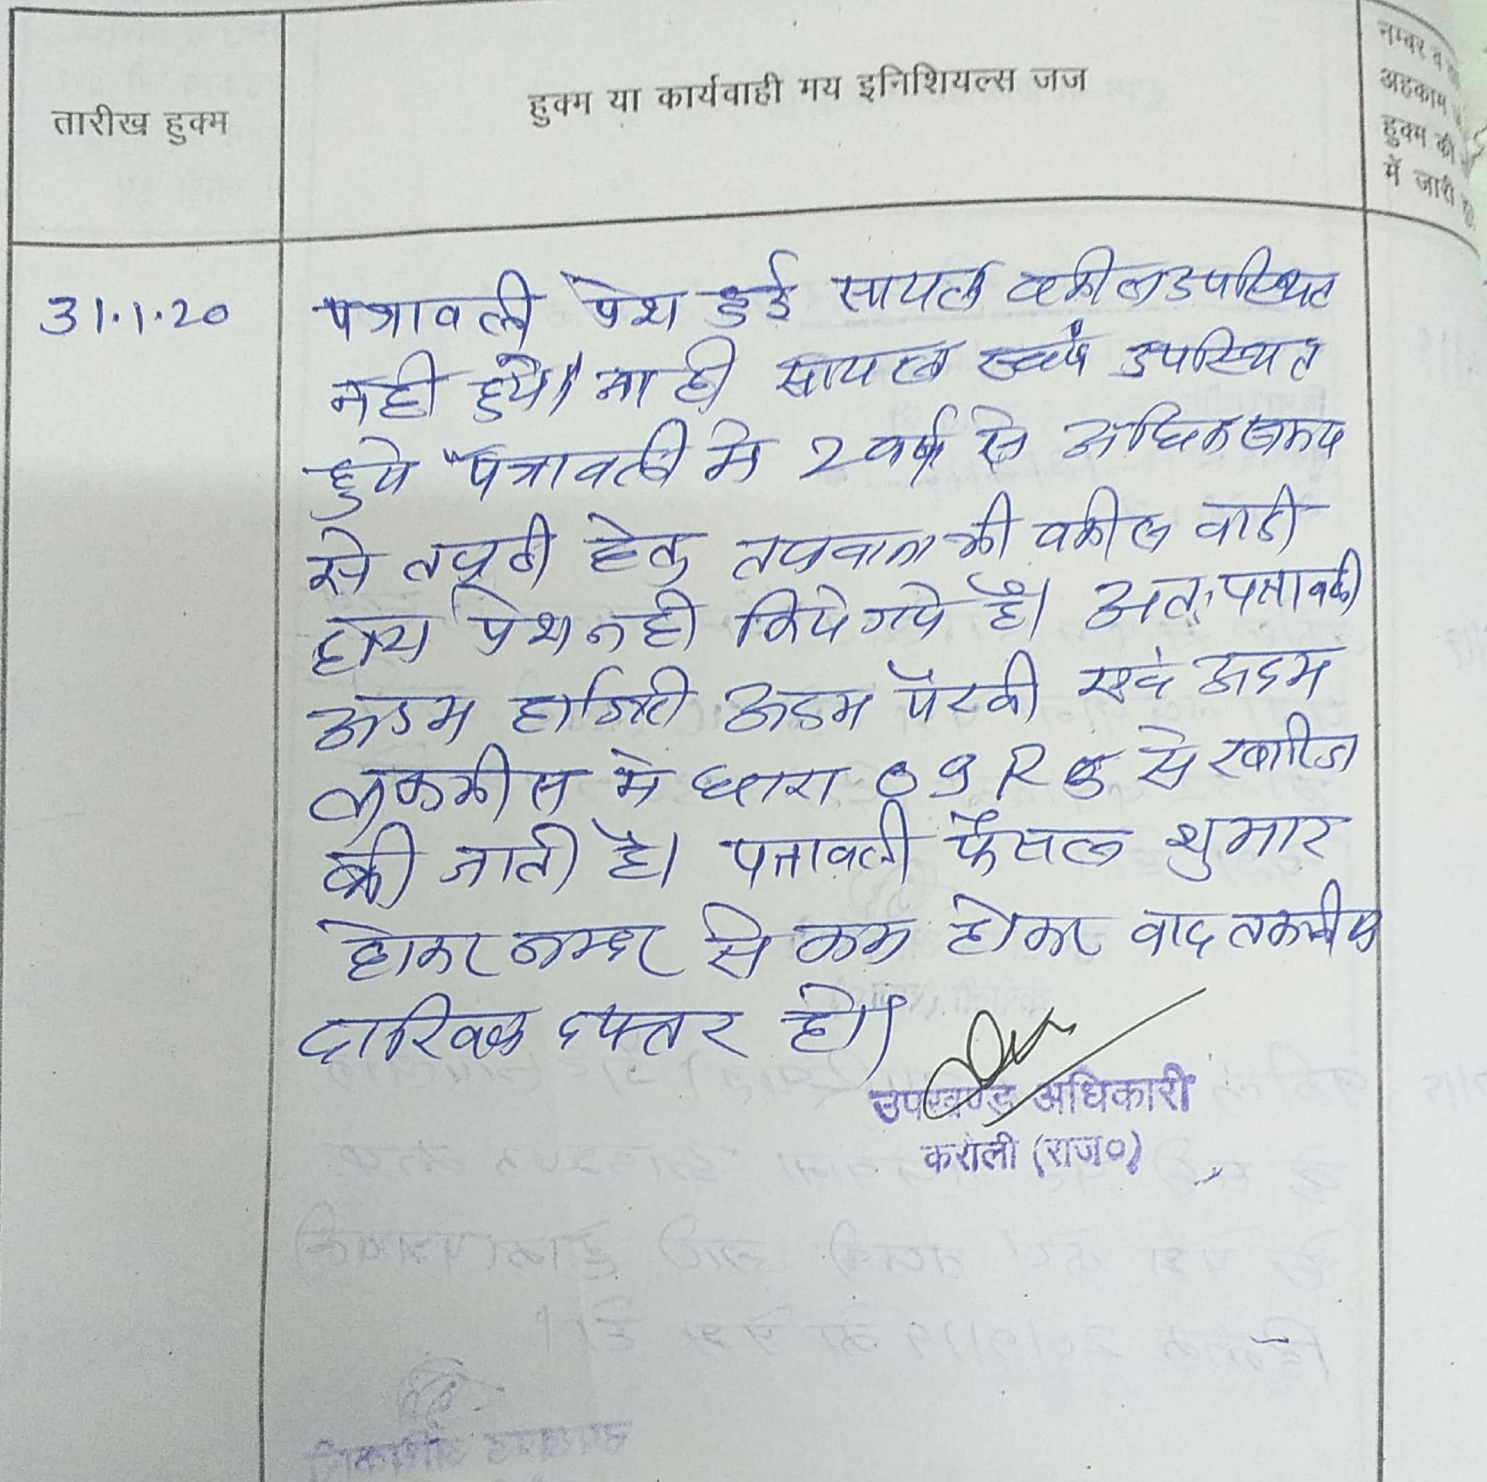 तारीख हुक्म
हुक्म या कार्यवाही मय इनिशियल्स जज
नम्बर व
अहकाम
हुक्म की
में जारी
31.1.20
पत्रावली पेश हुई सायल वकील उपस्थित
नही हुये। ना ही सायल स्वयं उपस्थित
हुये पत्रावली मे 2 वर्ष से अधिक समय
से तलवी हेतु तलवाना भी वकील वादी
द्वारा पेश नही किये गये है। अतः पत्रावली
अदम हाजिरी अदम पैरवी एवं अदम
तकमील मे धारा O 9 R 8 से खारिज
की जाती है। पत्रावली फैसल शुमार
होकर नम्बर से कम होकर वाद तकमील
दाखिल दफ्तर हो।
उपखण्ड अधिकारी
करौली (राज०)